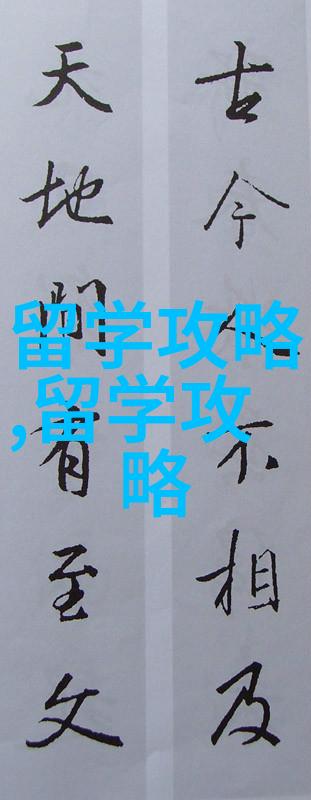 古今人不相及
天地間有至文
留学攻略
,留学攻
略